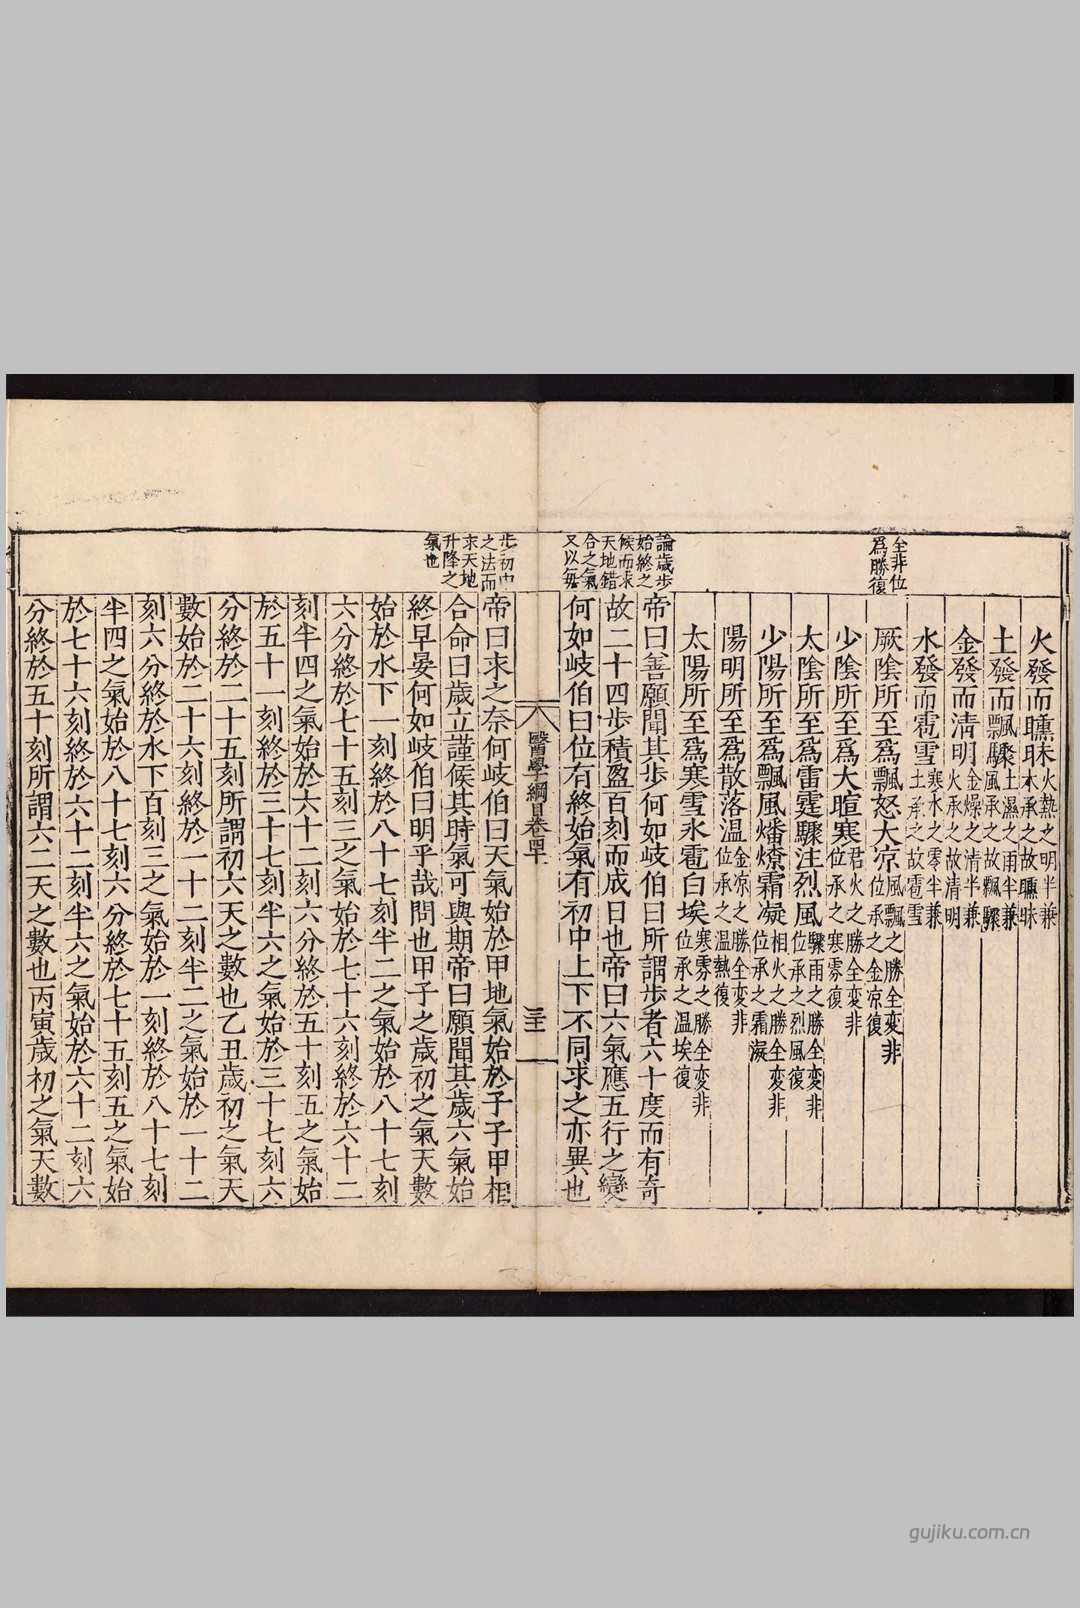 火發而曛昧火熱之明半兼水承之故曛昧
土發而飄驟土濕之雨半兼風承之故飄驟
金發而清明金燥之清半兼火承之故清明
水發而雹雪寒水之零半兼土承之故雹雪
全非位
爲勝復
厥陰所至爲飄怒大凉風飄之勝全変非位承之金凉復
少陰所至爲大暄寒君火之勝全変非位承之寒雰復
太陰所至爲雷霆驟注烈風驟雨之勝全変非位承之烈風復
少陽所至爲飄風燔燎霜凝相火之勝全変非位承之霜凝復
陽明所至爲散落温金凉之勝全変非位承之温熱復
太陽所至爲寒雪氷雹白埃寒雰之勝全変非位承之温埃復
論歲步
始終之
候而求
天地錯
合之氣
又以每
帝曰善願聞其步何如岐伯曰所謂步者六十度而有奇
故二十四步積盈百刻而成日也帝曰六氣應五行之變
何如岐伯曰位有終始氣有初中上下不同求之亦異也
醫學綱目卷四十
三十一
步初中
之法而
求天地
升降之
氣也
帝曰求之奈何岐伯曰天氣始於甲地氣始於子子甲相
合命曰歲立謹候其時氣可與期帝曰願聞其歲六氣始
終早晏何如岐伯曰明乎哉問也甲子之歲初之氣天數
始於水下一刻終於八十七刻半二之氣始於八十七刻
六分終於七十五刻三之氣始於七十六刻終於六十二
刻半四之氣始於六十二刻六分終於五十刻五之氣始
於五十一刻終於三十七刻半六之氣始於三十七刻六
分終於二十五刻所謂初六天之數也乙丑歲初之氣天
數始於二十六刻終於一十二刻半二之氣始於一十二
刻六分終於水下百刻三之氣始於一刻終於八十七刻
半四之氣始於八十七刻六分終於七十五刻五之氣始
於七十六刻終於六十二刻半六之氣始於六十二刻六
分終於五十刻所謂六二天之數也丙寅歲初之氣天數
gujiku.com.cn